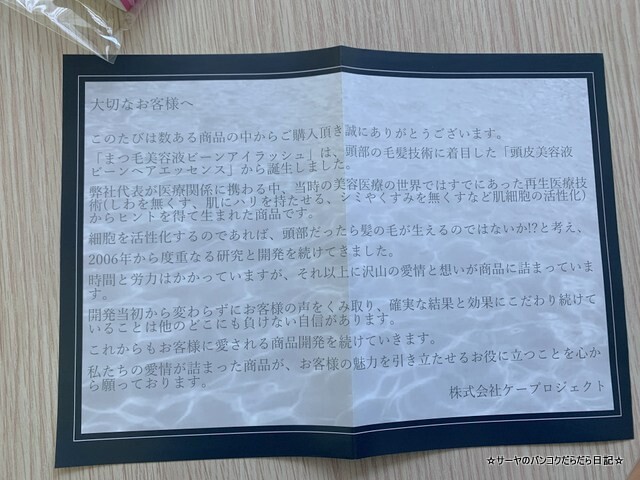 大切なお客様へ
このたびは数ある商品の中からご購入頂き誠にありがとうございます。
「まつ毛美容液ビーンアイラッシュ」は、頭部の毛髪技術に着目した「頭皮美容液
ビーンヘアエッセンス」から誕生しました。
弊社代表が医療関係に携わる中、当時の美容医療の世界ではすでにあった再生医療技
術(しわを無くす、肌にハリを持たせる、シミやくすみを無くすなど肌細胞の活性化)
からヒントを得て生まれた商品です。
細胞を活性化するのであれば、頭部だったら髪の毛が生えるのではないか!?と考え、
2006年から度重なる研究と開発を続けてきました。
時間と労力はかかっていますが、それ以上に沢山の愛情と想いが商品に詰まっていま
す。
開発当初から変わらずにお客様の声をくみ取り、確実な結果と効果にこだわり続けて
いることは他のどこにも負けない自信があります。
これからもお客様に愛される商品開発を続けていきます。
私たちの愛情が詰まった商品が、お客様の魅力を引き立たせるお役に立つことを心か
ら願っております。
株式会社ケープロジェクト
☆サーヤのバンコクだらだら日記☆